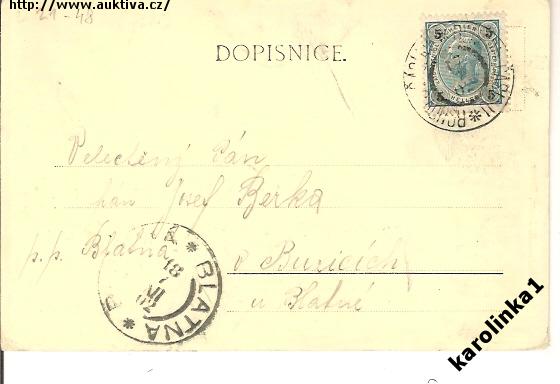 http://www.auktiva.cz/
21-48
DOPISNICE.
5 5
5 5
Velectěný Pán
pán Josef Berka
p. p. Blatná
v Buzicích
u Blatné
BLATNA
18
VII
02
karolinka1